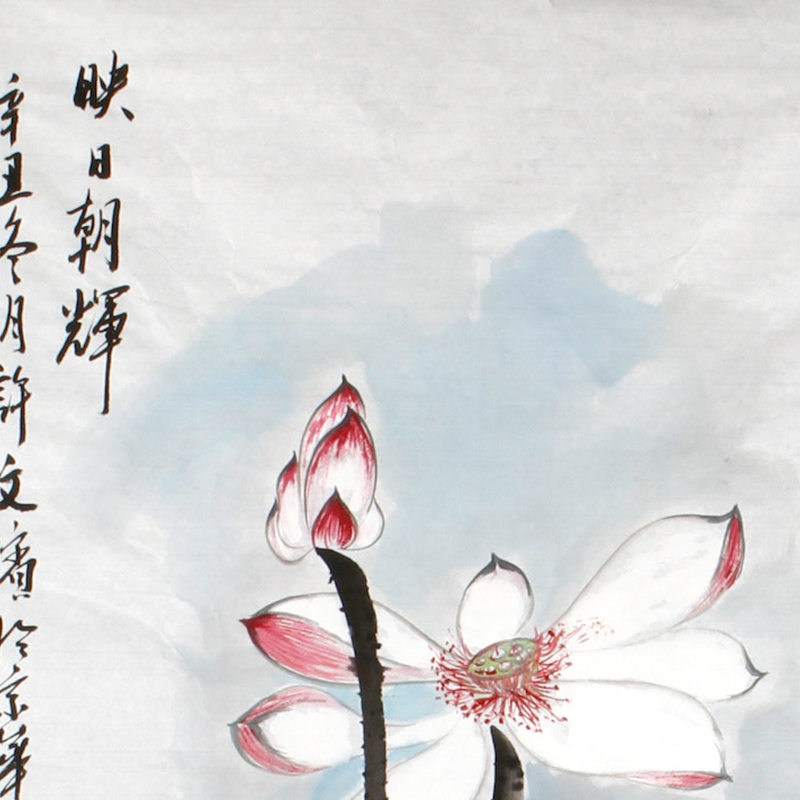 映日朝輝
辛丑冬月許文賓於京華